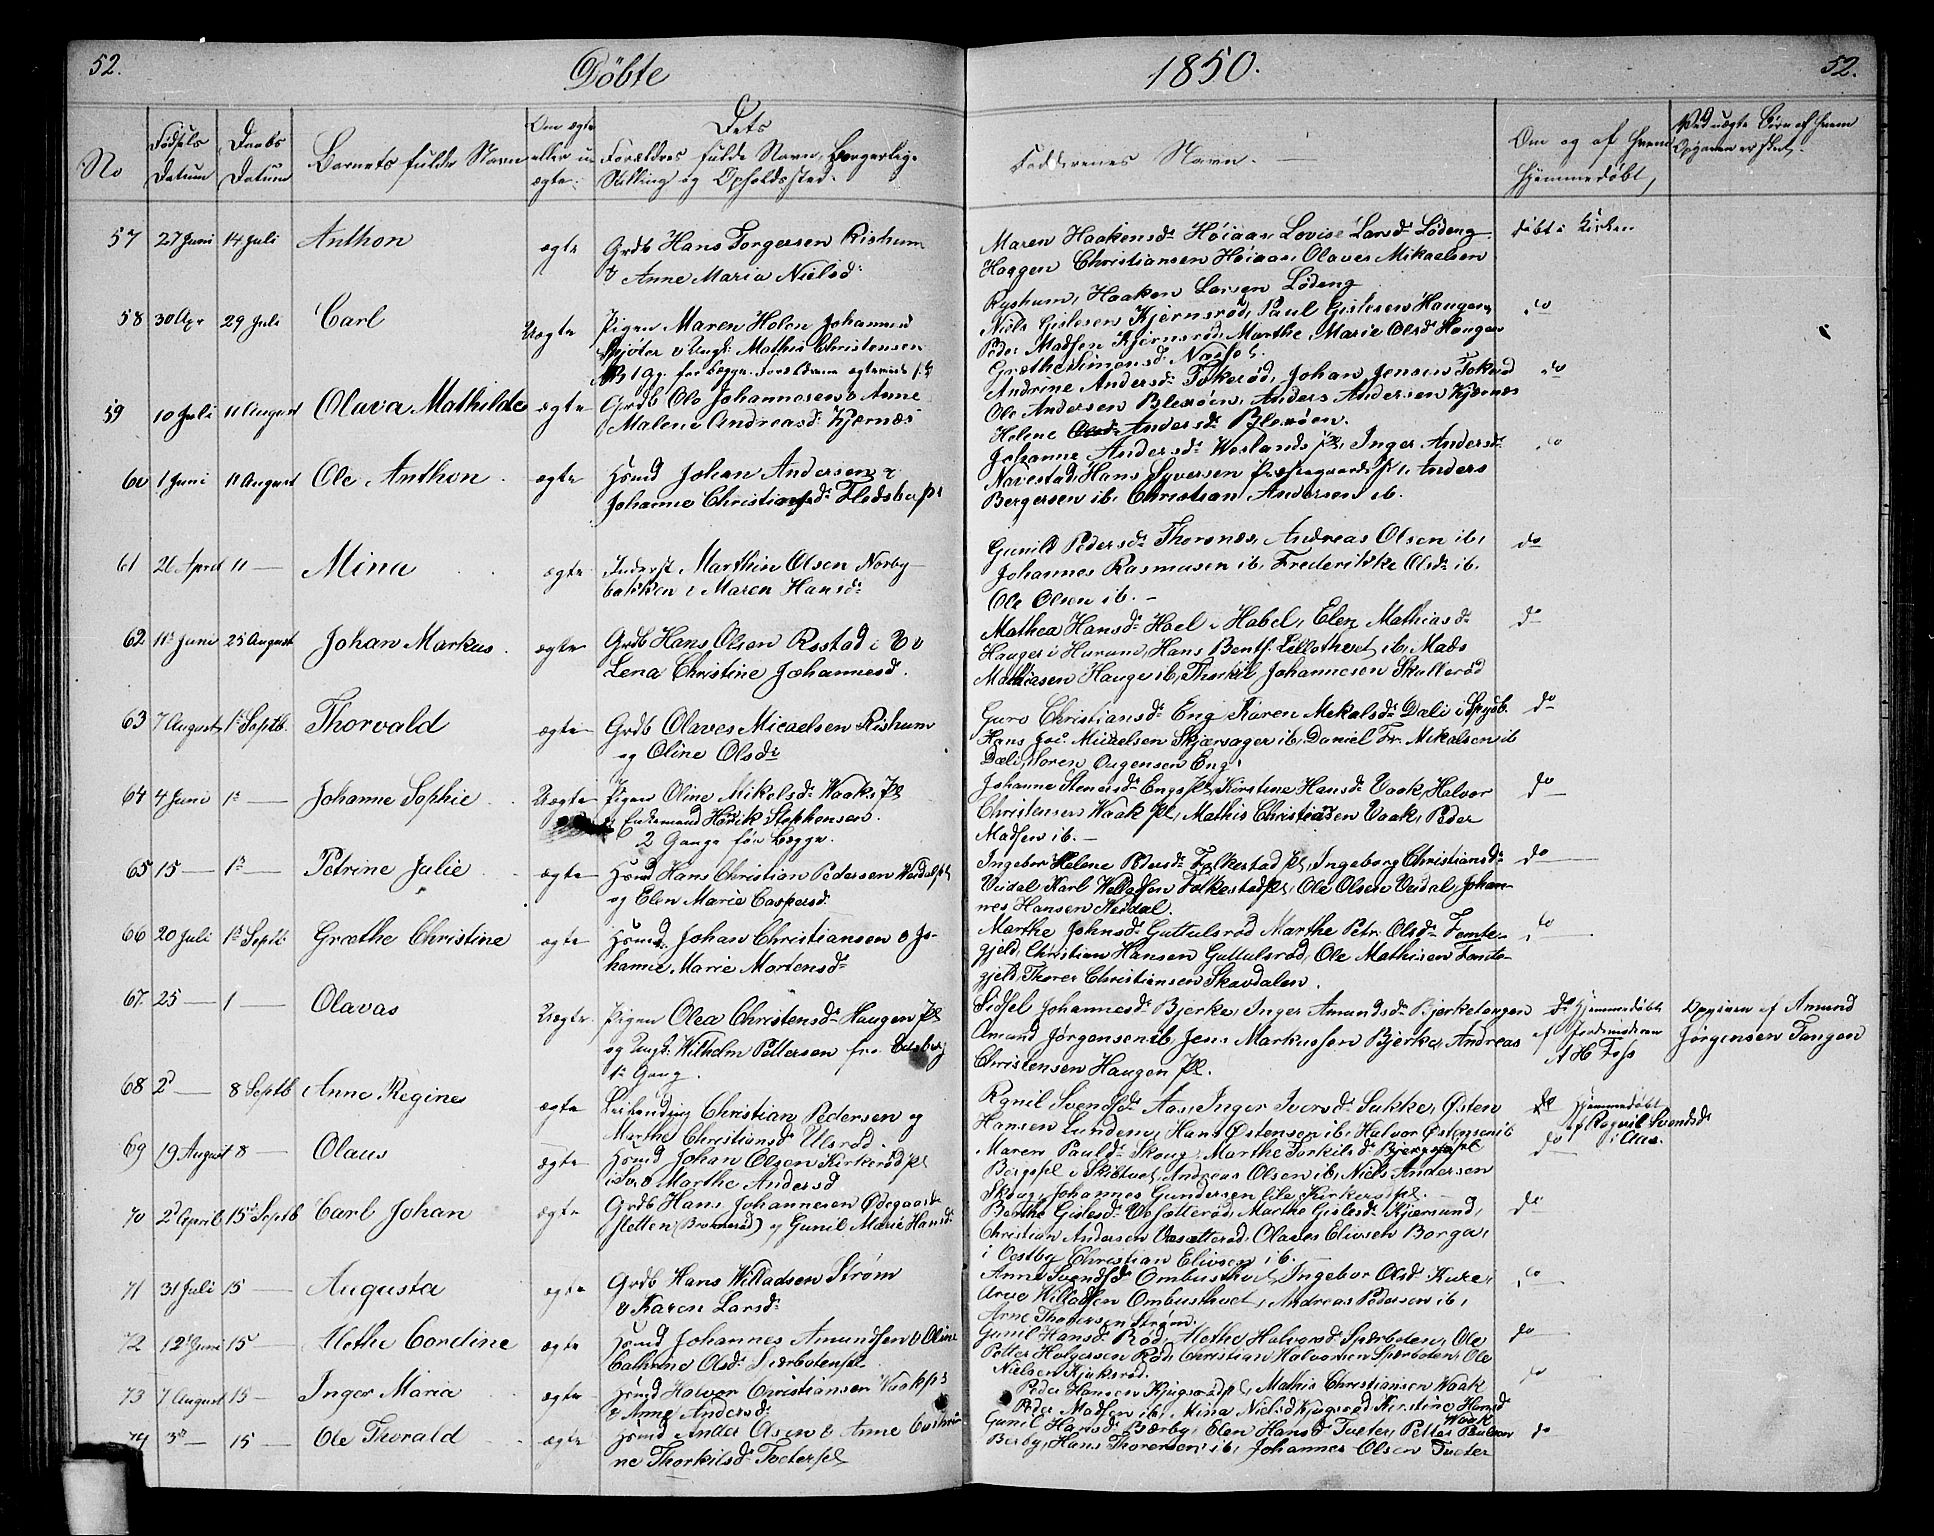 52.
Döbte
1850.
52.
No
Fødsels Datum
Daabs Datum
Barnets fulde Navn
Om ægte eller uægte.
Dets Forældres fulde Navn, Borgerlige Stilling og Opholdssted.
Faddernes Navn.
Om og af hvem Hjemmedøbt,
Ved uægte Børn af hvem Opgaven er skeet.
57 27 Juni 14 Juli Anthon ægte Grdb Hans Torgersen Rishum
& Anne Maria Nielsd:
Maren Haakensd: Höiaas, Lovise Larsd: Lödeng
Haagen Christiansen Höiaas, Olaves Mikaelsen
Ryshum, Haaken Larsen Lödeng
døbt i Kirken
58 30 Apr 29 Juli Carl Uægte Pigen Maren Helen Johannesd
Mathis Christensen
Niels Gislesen Kjernsröd, Paul Gislesen Haugen,
Peder Madsen Kjernsröd, Marthe Marie Olsd: Haugen
Græthe Simonsd:
do
59 10 Juli 11 August Olava Mathilde ægte Grdb Ole Johannesen & Anne
Malene Andreasd: Kjærnæs
Andrine Andersd: Tokeröd, Johan Jensen Tokeröd
Ole Andersen Blexöen, Anders Andersen Kjærnes
Helene Andersd: Blexöen.
do
60 1 Juni 11 August Ole Anthon ægte Hsmd Johan Andersen &
Johanne Christiansd:
Johanne Andersd: Inger Andersd:
Navestad, Hans Syversen Anders
Bergersen ib, Christian Andersen ib.
do
61 21 April 11 — Mina ægte Inderst Marthin Olsen Norby-
bakken & Maren Hansd:
Gunild Pedersd: Thorsnæs, Andreas Olsen ib,
Johannes Rasmusen ib, Frederikke Olsd: ib.
Ole Olsen ib. —
do
62 11 Juni 25 August Johan Markus ægte Grdb Hans Olsen Rostad
Lena Christine Johannesd.
Mathea Hansd: Hoel i Habel, Elen Mathiasd:
Hauger i Hurum, Hans Bentf. ib, Mads
Mathiasen Hauger ib, Thorkil Johannesen Skulleröd
do
63 7 August 1 Septb. Thorvald ægte Grdb Olaves Micaelsen Rishum
og Oline Olsd:
Guro Christiansd: Eng, Karen Mekalsd: Dæli i Spydb.
Hans Jac: Mickelsen Skjærsager ib, Daniel Fr. Mikalsen ib
Dæli, Soren Engensen Eng,
do
64 4 Juni 1 — Johanne Sophie Uægte Pigen Oline Mikelsd: Vaaks Pl
Enkemand Henrik Stephensen.
2 Gange før Begge.
Johanne Stensd: Engspl, Kirstine Hansd: Vaak, Halvor
Christensen Vaak pl, Mathis Christiansen Vaak, Peder
Madsen ib. —
do
65 15 — 1 — Petrine Julie ægte Hsmd Hans Christian Pedersen Veidalpl
og Elen Marie Caspersd:
Ingebor Helene Pedersd: Folkestad Pl, Ingeborg Christiansd:
Veidal, Karl Willadsen Folkestadpl, Ole Olsen Veidal, Johan-
nes Hansen Veidal.
do
66 20 Juli 1 Septb: Græthe Christine ægte Hsmd: Johan Christiansen & Jo-
hanne Marie Mortensd:
Marthe Johnsd: Guttulsröd, Marthe Petr. Olsd: Femte-
gjeld, Christian Hansen Guttulsröd, Ole Mathisen Femte-
gjeld, Thorer Christiansen Skovdalen.
do
67. 25 — 1 — Olavas Uægte. Pigen Olea Christensd: Haugen Pl
og Ungk: Wilhelm Pettersen fra
1 Gang.
Sidsel Johannesd: Bjerke, Inger Amundsd: Bjerketangen
Amund Jörgensen ib, Jens Markussen Bjerke, Andreas
Christensen Haugen Pl.
do Hjemmedöbt
af Jordemoderen
A H Foss
Opgiven af Amund
Jörgensen Tangen
68 2 — 8 Septb Anne Regines ægte Christian Pedersen og
Marthe Christiansd: Ulsröd.
Ragnil Svendsd: Aas, Inger Iversd: Sukke, Østen
Hansen Lundeng, Hans Østensen ib, Halvor Østensen ib
do Hjemmedöbt
af Ragnil Svendsd:
i Aas.
69 19 August 8 — Olaus ægte Hsmd Johan Olsen Kirkeröd pl
& Marthe Andersd
Maren Paulsd: Skoug, Marthe Torkilsd:
Bergspl i Skibtvet, Andreas Olsen ib, Niels Andersen
Skoug, Johannes Gundersen Kirkeröd pl.
do
70 2 April 15 Septb Carl Johan ægte Grdb Hans Johannesen Ødegaard
Sletten (Bromröd) og Gunil Marie Hansd:
Berthe Gislesd: Marthe Gislesd: Kjærsund,
Christian Andersen Olaves Elivsen Borge,
i Vestby, Christian Elivsen ib. —
do
71 31 Juli 15 — Augusta ægte Grdb Hans Willadsen Strøm
& Karen Larsd:
Anne Svendsd: Ombusthvet, Ingebor Olsd:
Arve Willadsen Ombusthvet, Andreas Pedersen ib,
Arne Thoresen Strøm.
do
72 12 Juni 15 — Alethe Cordine ægte Hsmd Johannes Amundsen & Oline
Cathrine Olsd: Spærbotenpl.
Gunil Hansd: Röd, Alethe Halvorsd: Spærboten, Ole
Petter Holgersen Röd, Christian Halvorsen Spærboten, Ole
Nielsen Kjuksröd.
do
73 7 August 15 — Inger Maria ægte Hsmd Halvor Christiansen Vaakpl
& Anne Andersd:
Peder Hansen Kjugsrödpl, Mathis Christiansen Vaak
Peder Madsen ib, Mina Nielsd Kjugsröd, Kirstine Hansd
Vaak
do
74 3 — 15 — Ole Thorald ægte Hsmd Ander Olsen & Anne
ne Thorkilsd: Tveterpl
Gunil Hansd: Bærby, Elen Hansd Tveter, Petter Paulsen
Berby, Hans Thoresen ib, Johannes Olsen Tveter
do